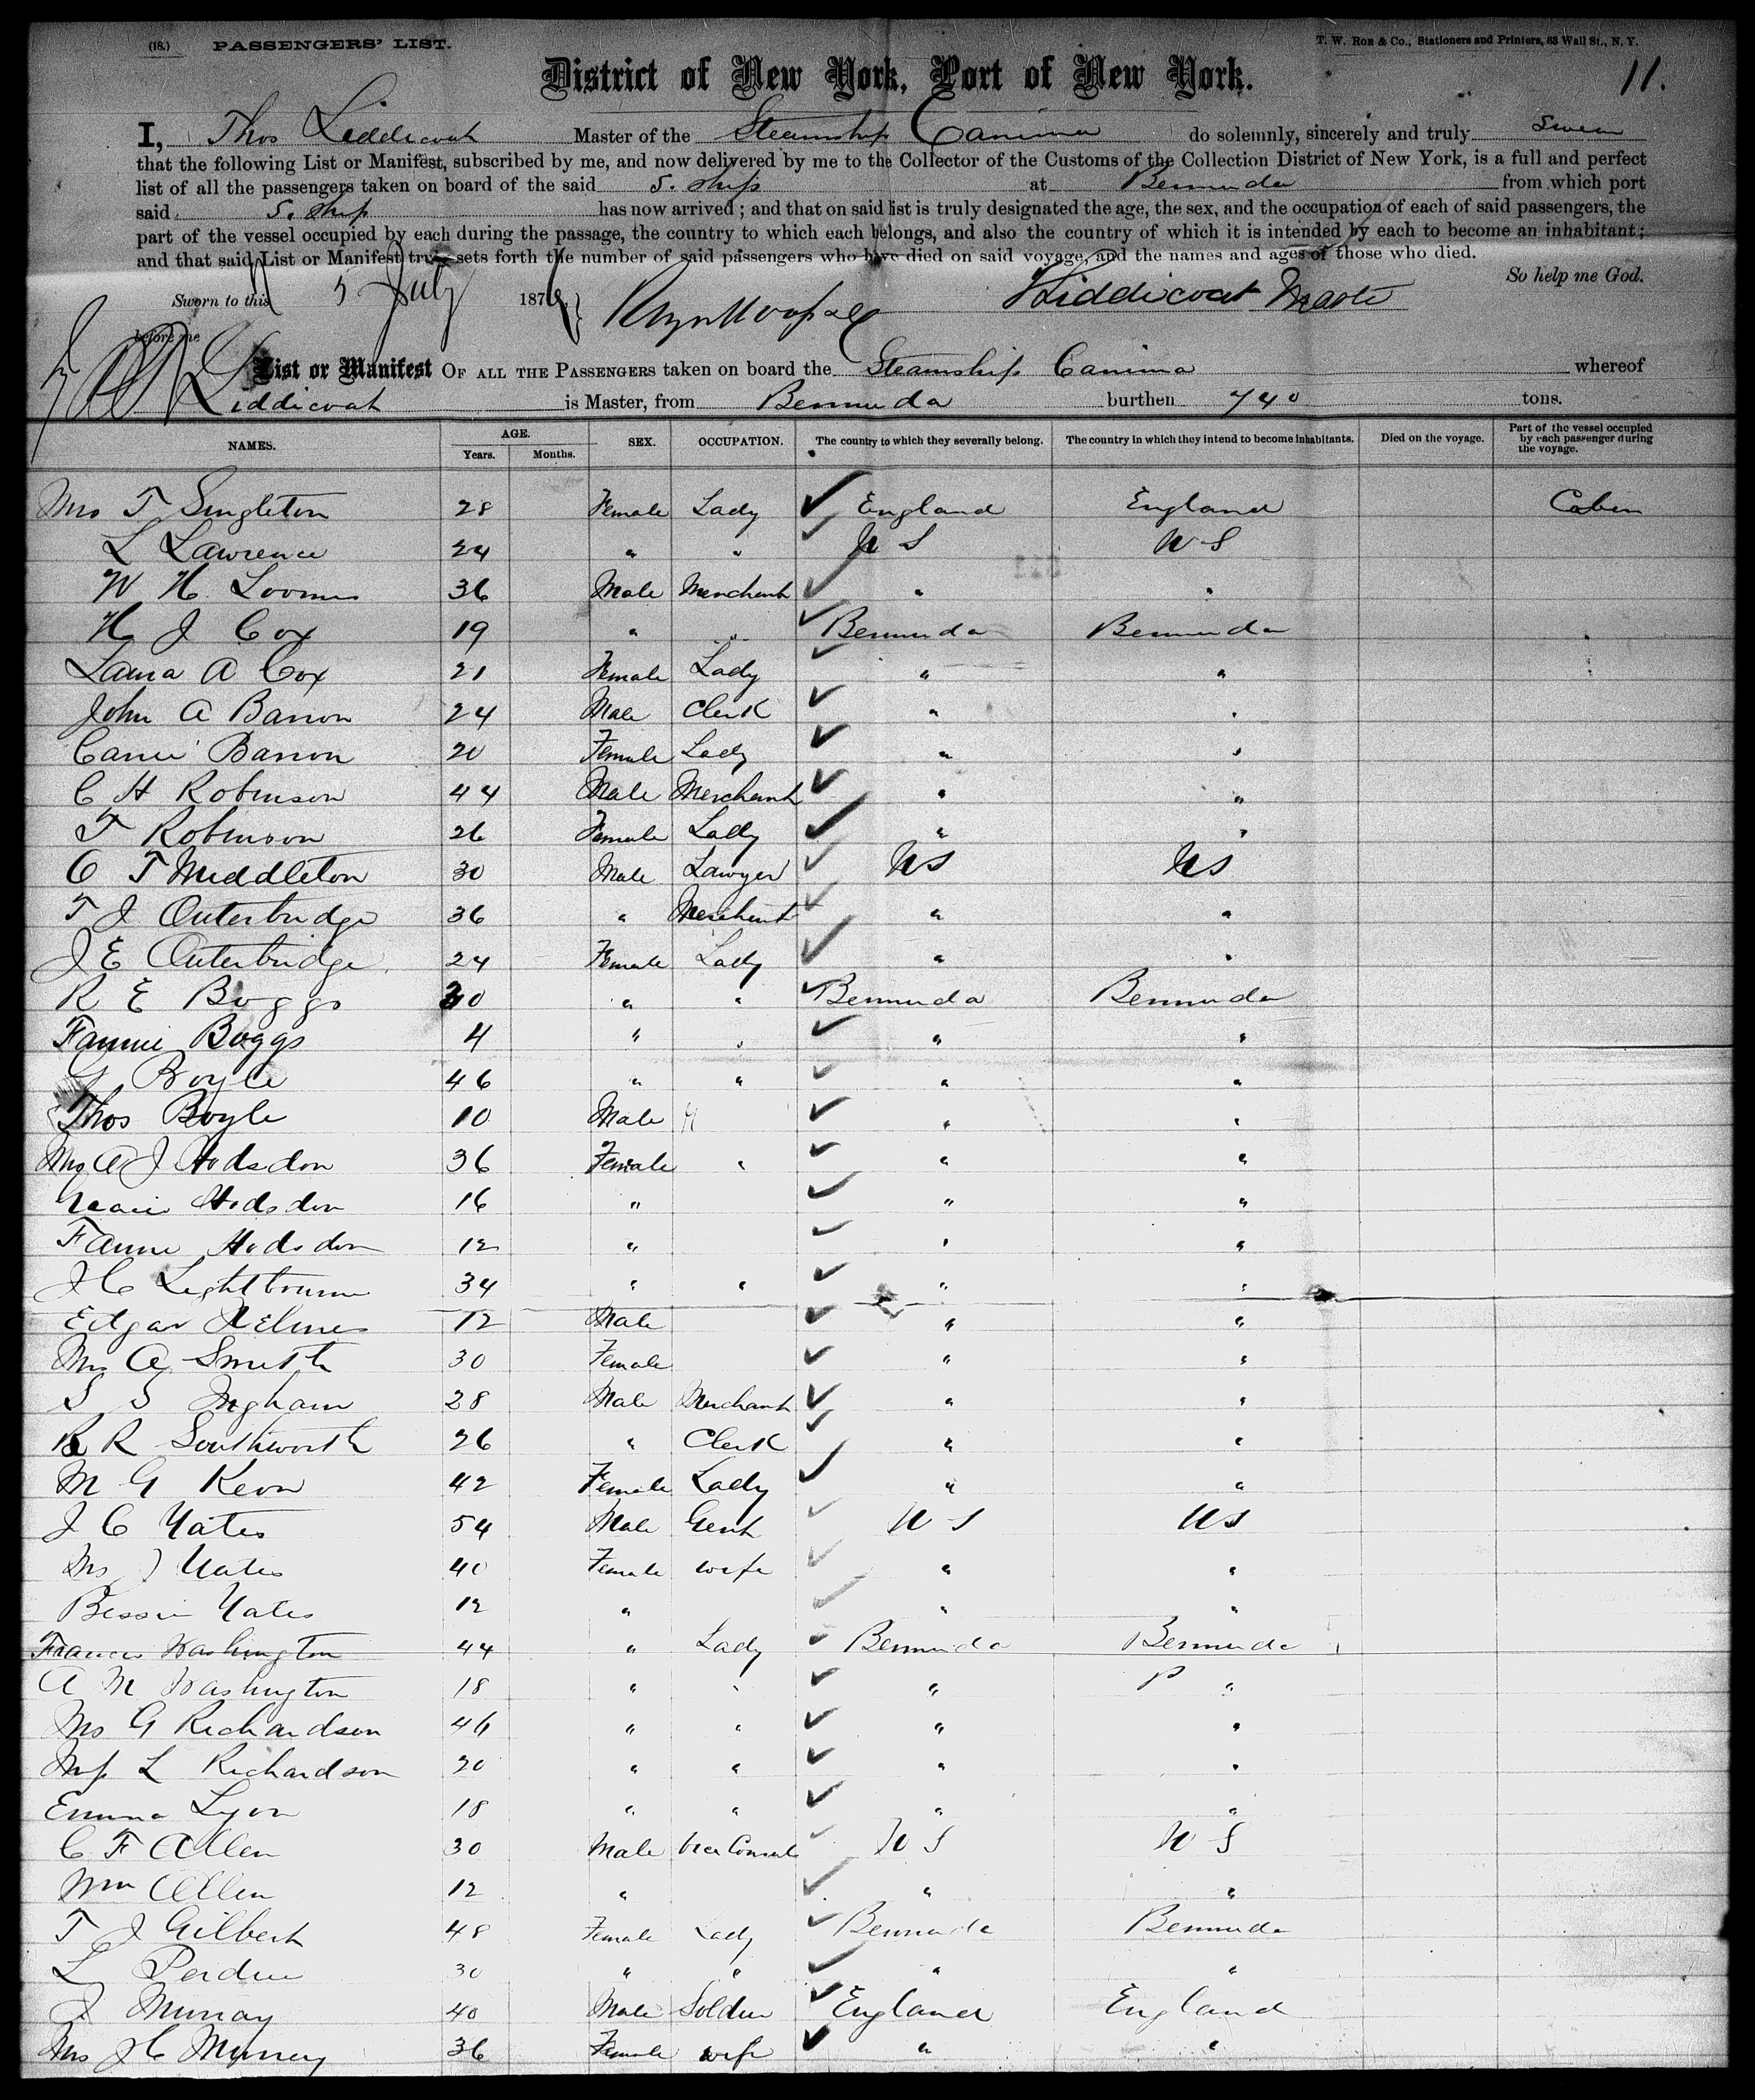 (18.) PASSENGERS' LIST. T. W. Roe & Co., Stationers and Printers, 63 Wall St., N. Y.
District of New York, Port of New York. 11.
I, Thos Liddicoat Master of the Steamship Canima do solemnly, sincerely and truly Swear
that the following List or Manifest, subscribed by me, and now delivered by me to the Collector of the Customs of the Collection District of New York, is a full and perfect
list of all the passengers taken on board of the said S. Ship at Bermuda from which port
said S. Ship has now arrived; and that on said list is truly designated the age, the sex, and the occupation of each of said passengers, the
part of the vessel occupied by each during the passage, the country to which each belongs, and also the country of which it is intended by each to become an inhabitant;
and that said List or Manifest truly sets forth the number of said passengers who have died on said voyage, and the names and ages of those who died.
So help me God.
Sworn to this 5 July 1876 Liddicoat Master
before me
List or Manifest OF ALL THE PASSENGERS taken on board the Steamship Canima whereof
Liddicoat is Master, from Bermuda burthen 740 tons.
NAMES. AGE. Years. Months. SEX. OCCUPATION. The country to which they severally belong. The country in which they intend to become inhabitants. Died on the voyage. Part of the vessel occupied by each passenger during the voyage.
Mrs T Singleton 28 Female Lady England England Caben
L Lawrence 24 " " U S U S
W H Loomis 36 Male Merchant " "
H J Cox 19 " " Bermuda Bermuda
Laura A Cox 21 Female Lady " "
John A Barron 24 Male Clerk " "
Carrie Barron 20 Female Lady " "
C H Robinson 44 Male Merchant " "
T Robinson 26 Female Lady " "
C T Middleton 30 Male Lawyer US US
T J Outerbridge 36 " Merchant " "
J E Outerbridge 24 Female Lady " "
R E Boggs 30 " " Bermuda Bermuda
Fannie Boggs 4 " " " "
Boyle 46 " " " "
Thos Boyle 10 Male " "
Mrs A J Hodsdon 36 Female " " "
Hodsdon 16 " " "
Fannie Hodsdon 12 " " "
J C Lightbourne 34 " " " "
Edgar 12 Male " "
Mrs A Smith 30 Female " "
S S Ingham 28 Male Merchant " "
R Southworth 26 " Clerk " "
M G Keon 42 Female Lady " "
J C Yates 54 Male Gent U S US
Mrs J Yates 40 Female wife " "
Bessie Yates 12 " " "
Frances Washington 44 " Lady Bermuda Bermuda
A M Washington 18 " " " "
Mrs G Richardson 46 " " " "
Miss L Richardson 20 " " " "
Emma Lyon 18 " " " "
C F Allen 30 Male Vice Consul U S U S
Wm Allen 12 " " "
T J Gilbert 48 Female Lady Bermuda Bermuda
L Perdue 30 " " " "
J Murray 40 Male Soldier England England
Mrs J C Murray 36 Female wife " "